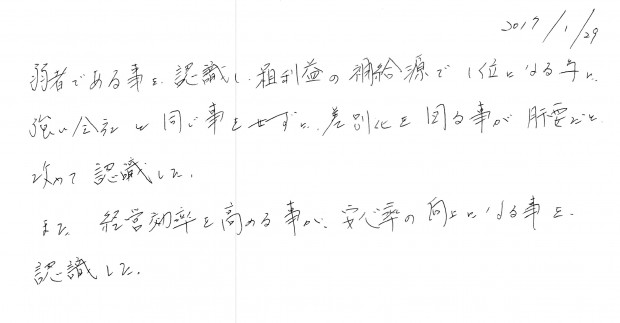 2019/1/29
弱者である事を認識し、粗利益の補給源で1位になる為に
強い会社と同じ事をせずに、差別化を図る事が肝要だと
改めて認識した。
また、経営効率を高める事が、安心率の向上になる事を
認識した。